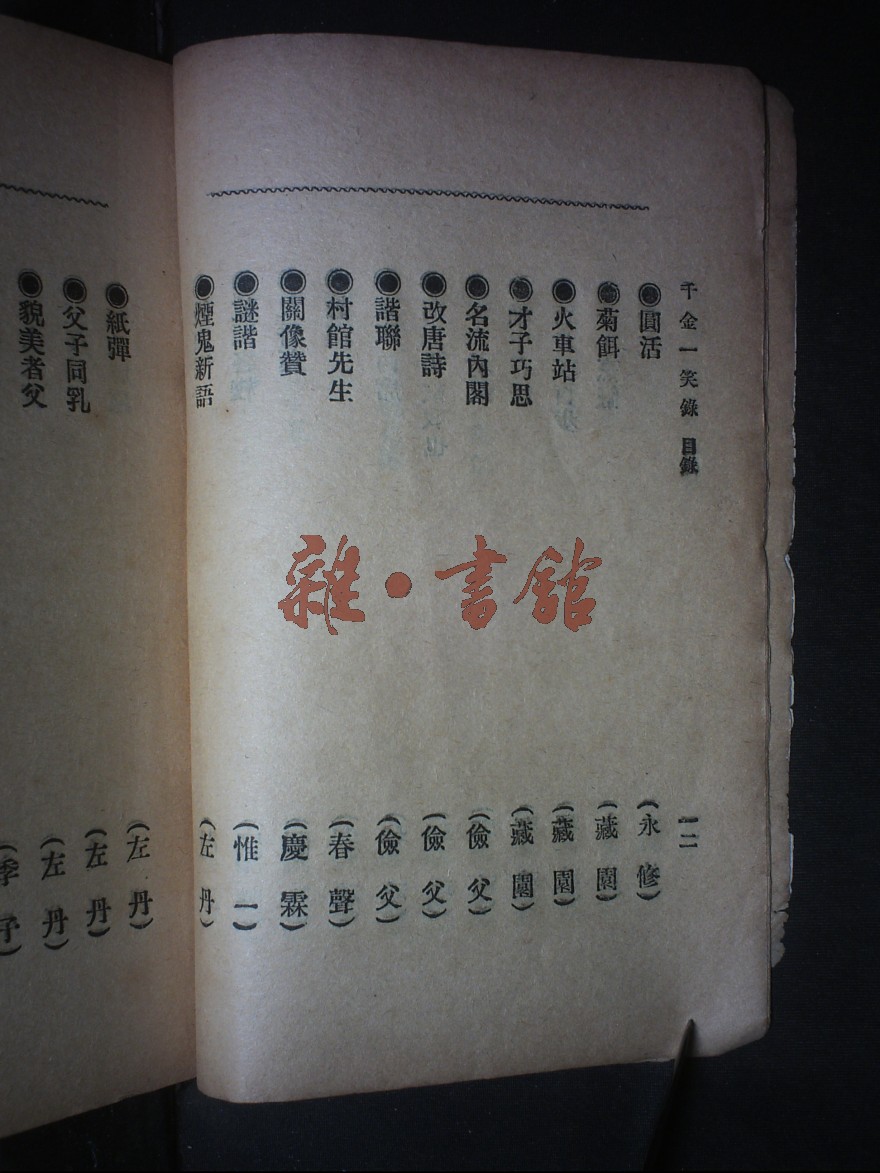 千金一笑錄 目錄 一二
●圓活 (永修)
●菊餌 (藏園)
●火車站 (藏園)
●才子巧思 (藏園)
●名流內閣 (儉父)
●改唐詩 (儉父)
●諧聯 (儉父)
●村館先生 (春聲)
●關像贊 (慶霖)
●謎諧 (惟一)
●煙鬼新語 (左丹)
●紙彈 (左丹)
●父子同乳 (左丹)
●貌美者父 (左丹)
(季子)
雜·書館